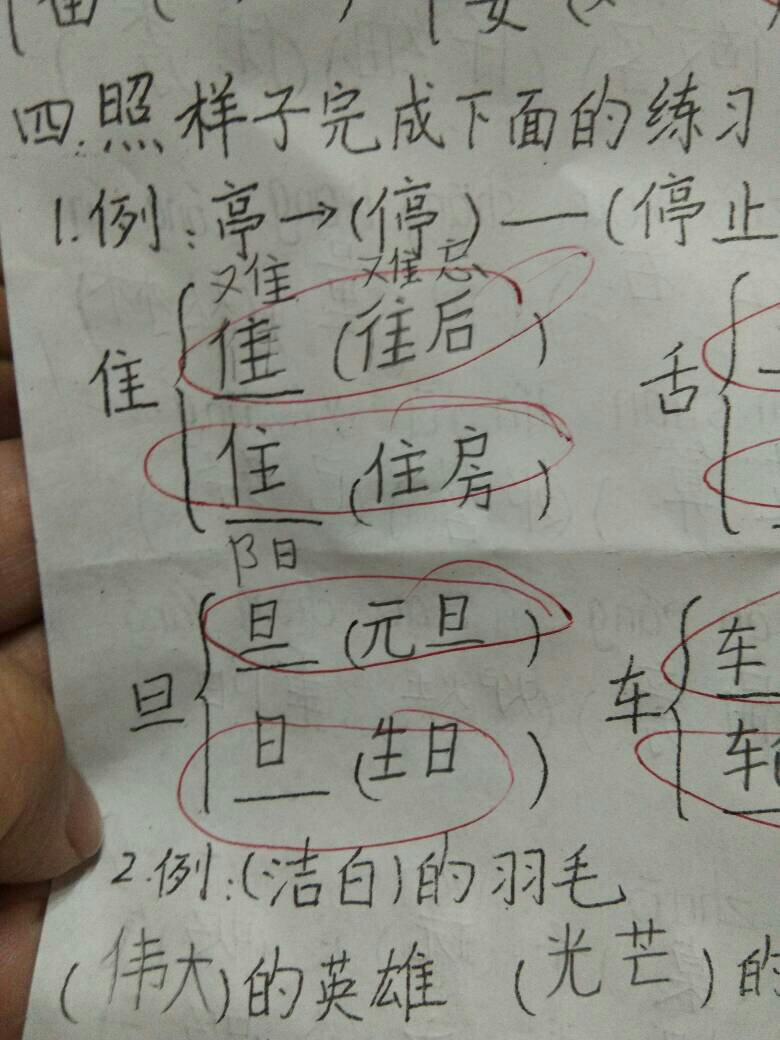 四.照样子完成下面的练习
1.例:亭→(停)—(停止
难 难忘
隹 (往后)
隹 舌
住 (住房)
阳
旦 (元旦) 车
旦 车
日 (生日) 车
2.例:(洁白)的羽毛
(伟大)的英雄 (光芒)的